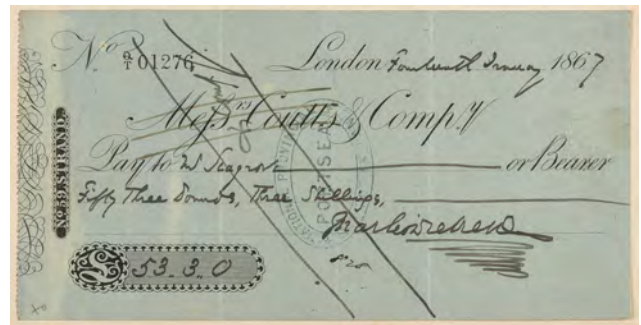 No 9/T 01276 London Fourteenth January 1867
Messrs Coutts & Compy
Pay to W Seagrove or Bearer
Fifty Three Pounds, Three Shillings,
Charles Dickens
£ 53.3.0
No 59, STRAND.
NATIONAL PROVI
PORTSEA